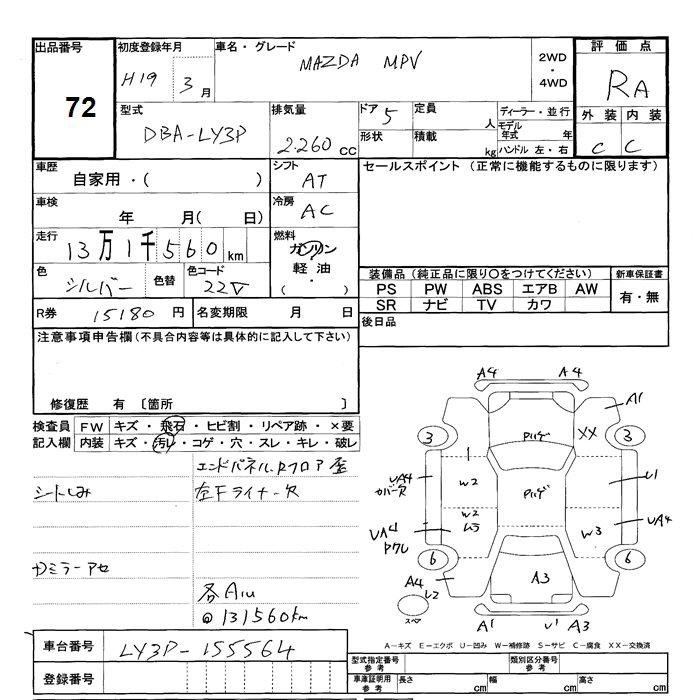 出品番号
72
初度登録年月
H19 3月
車名・グレード
MAZDA MPV
2WD
・
4WD
評価点
RA
外装 内装
C C
型式
DBA-LY3P
排気量
2.260 cc
ドア 5
定員
人
形状
積載
kg
ディーラー・並行
モデル年式 年
ハンドル 左・右
車歴
自家用・( )
シフト
AT
セールスポイント (正常に機能するものに限ります)
車検
年 月( 日)
冷房
AC
走行
13万1千560km
燃料
ガソリン
軽油
( ・ )
色
シルバー
色替
色コード
22V
装備品 (純正品に限り○をつけてください)
PS PW ABS エアB AW
SR ナビ TV カワ
新車保証書
有・無
R券 15180 円
名変期限 月 日
後日品
注意事項申告欄(不具合内容等は具体的に記入して下さい)
修復歴 有 〔箇所 〕
検査員記入欄
FW キズ・飛石・ヒビ割・リペア跡・×要
内装 キズ・汚レ・コゲ・穴・スレ・キレ・破レ
エンドパネル,Rフロア歪
シートしみ
左Fライナー欠
ドミラーアセ
各A1U
@131560km
A4 A4
A1
XX
3 3
Rハゲ
Rハゲ
UA4
カバー欠
W2
U1
W2
ムラ
UA4
Rワレ
W3
UA4
6 6
A4
U2
A3
スペア
A1 U1 A3
A−キズ E−エクボ U−凹み W−補修跡 S−サビ C−腐食 XX−交換済
車台番号
LY3P-155564
登録番号
型式指定番号
参考
類別区分番号
参考
車庫証明用
参考
長さ cm
幅 cm
高さ cm